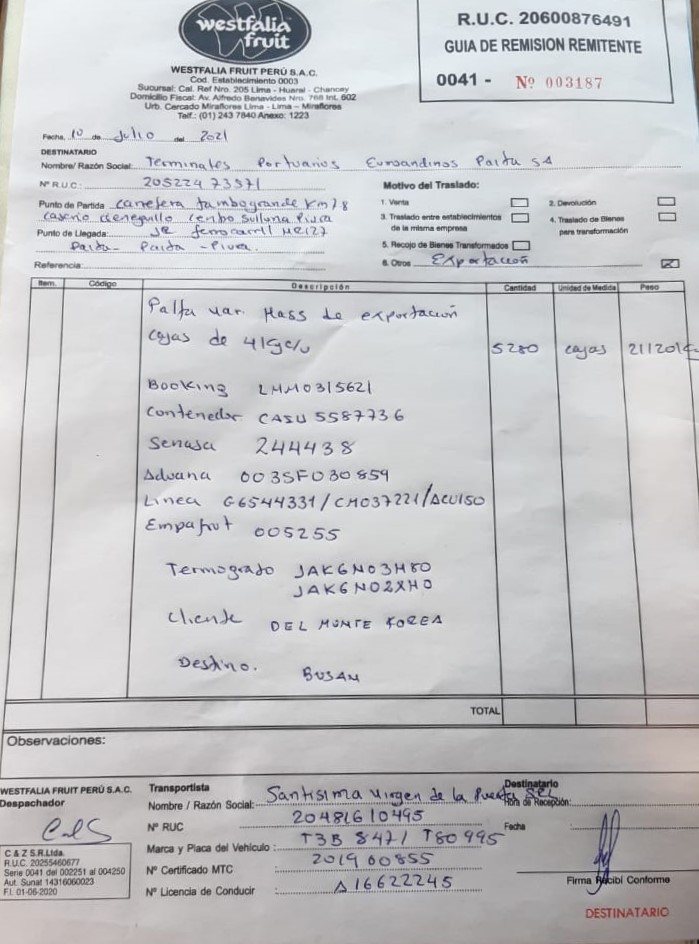 westfalia
fruit
WESTFALIA FRUIT PERÚ S.A.C.
Cod. Establecimiento 0003
Sucursal: Cal. Ref Nro. 205 Lima - Huaral - Chancay
Domicilio Fiscal: Av. Alfredo Benavides Nro. 768 Int. 602
Urb. Cercado Miraflores Lima - Lima - Miraflores
Telf.: (01) 243 7840 Anexo: 1223
R.U.C. 20600876491
GUIA DE REMISION REMITENTE
0041 - Nº 003187
Fecha, 10 de Julio del 2021
DESTINATARIO
Nombre/ Razón Social: Terminales Portuarios Euroandinos Paita SA
Nº R.U.C.: 20522473571
Punto de Partida carretera tambogrande Km 78
caserio cieneguillo cenbo Sullana Piura
Punto de Llegada: JR ferrocarril MR127
Paita - Paita - Piura
Referencia:
Motivo del Traslado:
1. Venta
2. Devolución
3. Traslado entre establecimientos
de la misma empresa
4. Traslado de Bienes
para transformación
5. Recojo de Bienes Transformados
6. Otros Exportación
Item. Código Descripción Cantidad Unidad de Medida Peso
Palta var. Hass de exportación
cajas de 4kg c/u 5280 cajas
Booking LMM0315621
Contenedor CASU 5587736
Senasa 244438
Aduana 003SF030859
Linea G6544331/CM037221/ACUISO
Empafrut 005255
Termogrado JAK6N03H80
JAK6N02XH0
Cliente DEL MONTE KOREA
Destino. BUSAN
TOTAL
Observaciones:
WESTFALIA FRUIT PERÚ S.A.C.
Despachador
C & Z S.R.Ltda.
R.U.C. 20255460677
Serie 0041 del 002251 al 004250
Aut. Sunat 14316060023
F.I. 01-06-2020
Transportista
Nombre / Razón Social: Santisima Virgen de la Puerta SRL
Nº RUC 20481610495
Marca y Placa del Vehículo: T3B 847/ T80 995
Nº Certificado MTC 201900855
Nº Licencia de Conducir A16622245
Destinatario
Hora de Recepción:
Fecha
Firma Recibí Conforme
DESTINATARIO